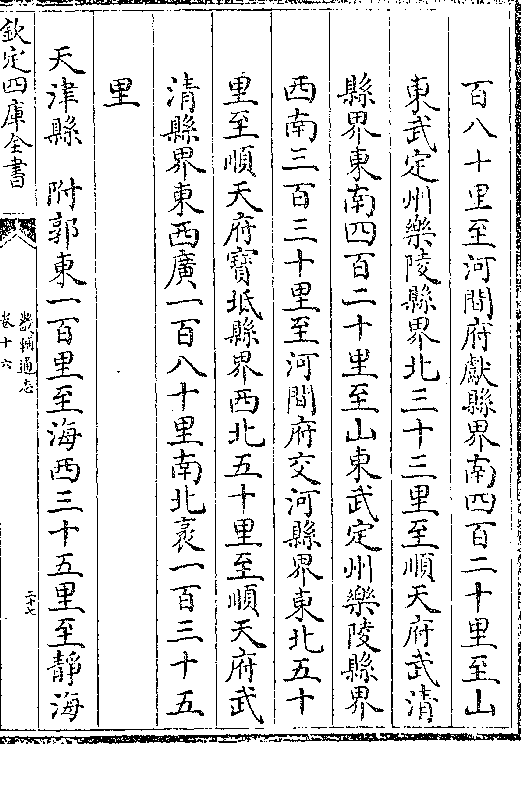 百八十里至河間府獻縣界南四百二十里至山
東武定州樂陵縣界北三十三里至順天府武清
縣界東南四百二十里至山東武定州樂陵縣界
西南三百三十里至河間府交河縣界東北五十
里至順天府寶坻縣界西北五十里至順天府武
清縣界東西廣一百八十里南北袤一百三十五
里
天津縣 附郭東一百里至海西三十五里至靜海
欽定四庫全書
畿輔通志
卷十六
二十七